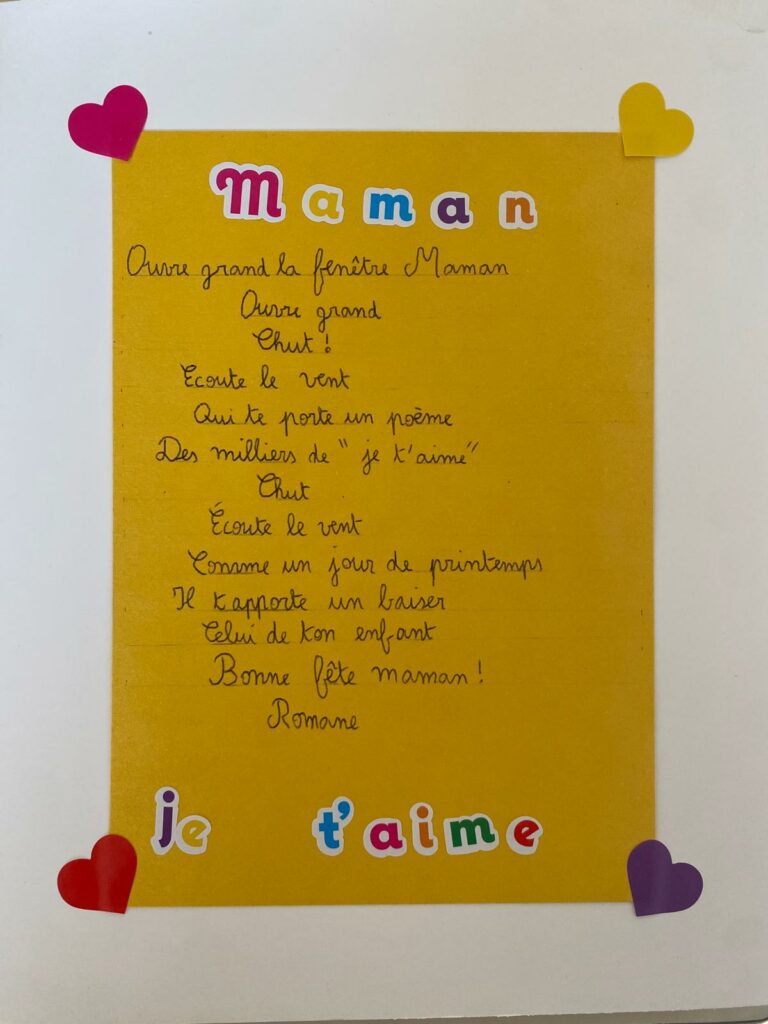 Maman
Ouvre grand la fenêtre Maman
Ouvre grand
Chut !
Ecoute le vent
Qui te porte un poème
Des milliers de " je t'aime "
Chut
Écoute le vent
Comme un jour de printemps
Il t'apporte un baiser
Celui de ton enfant
Bonne fête maman !
Romane
je t'aime